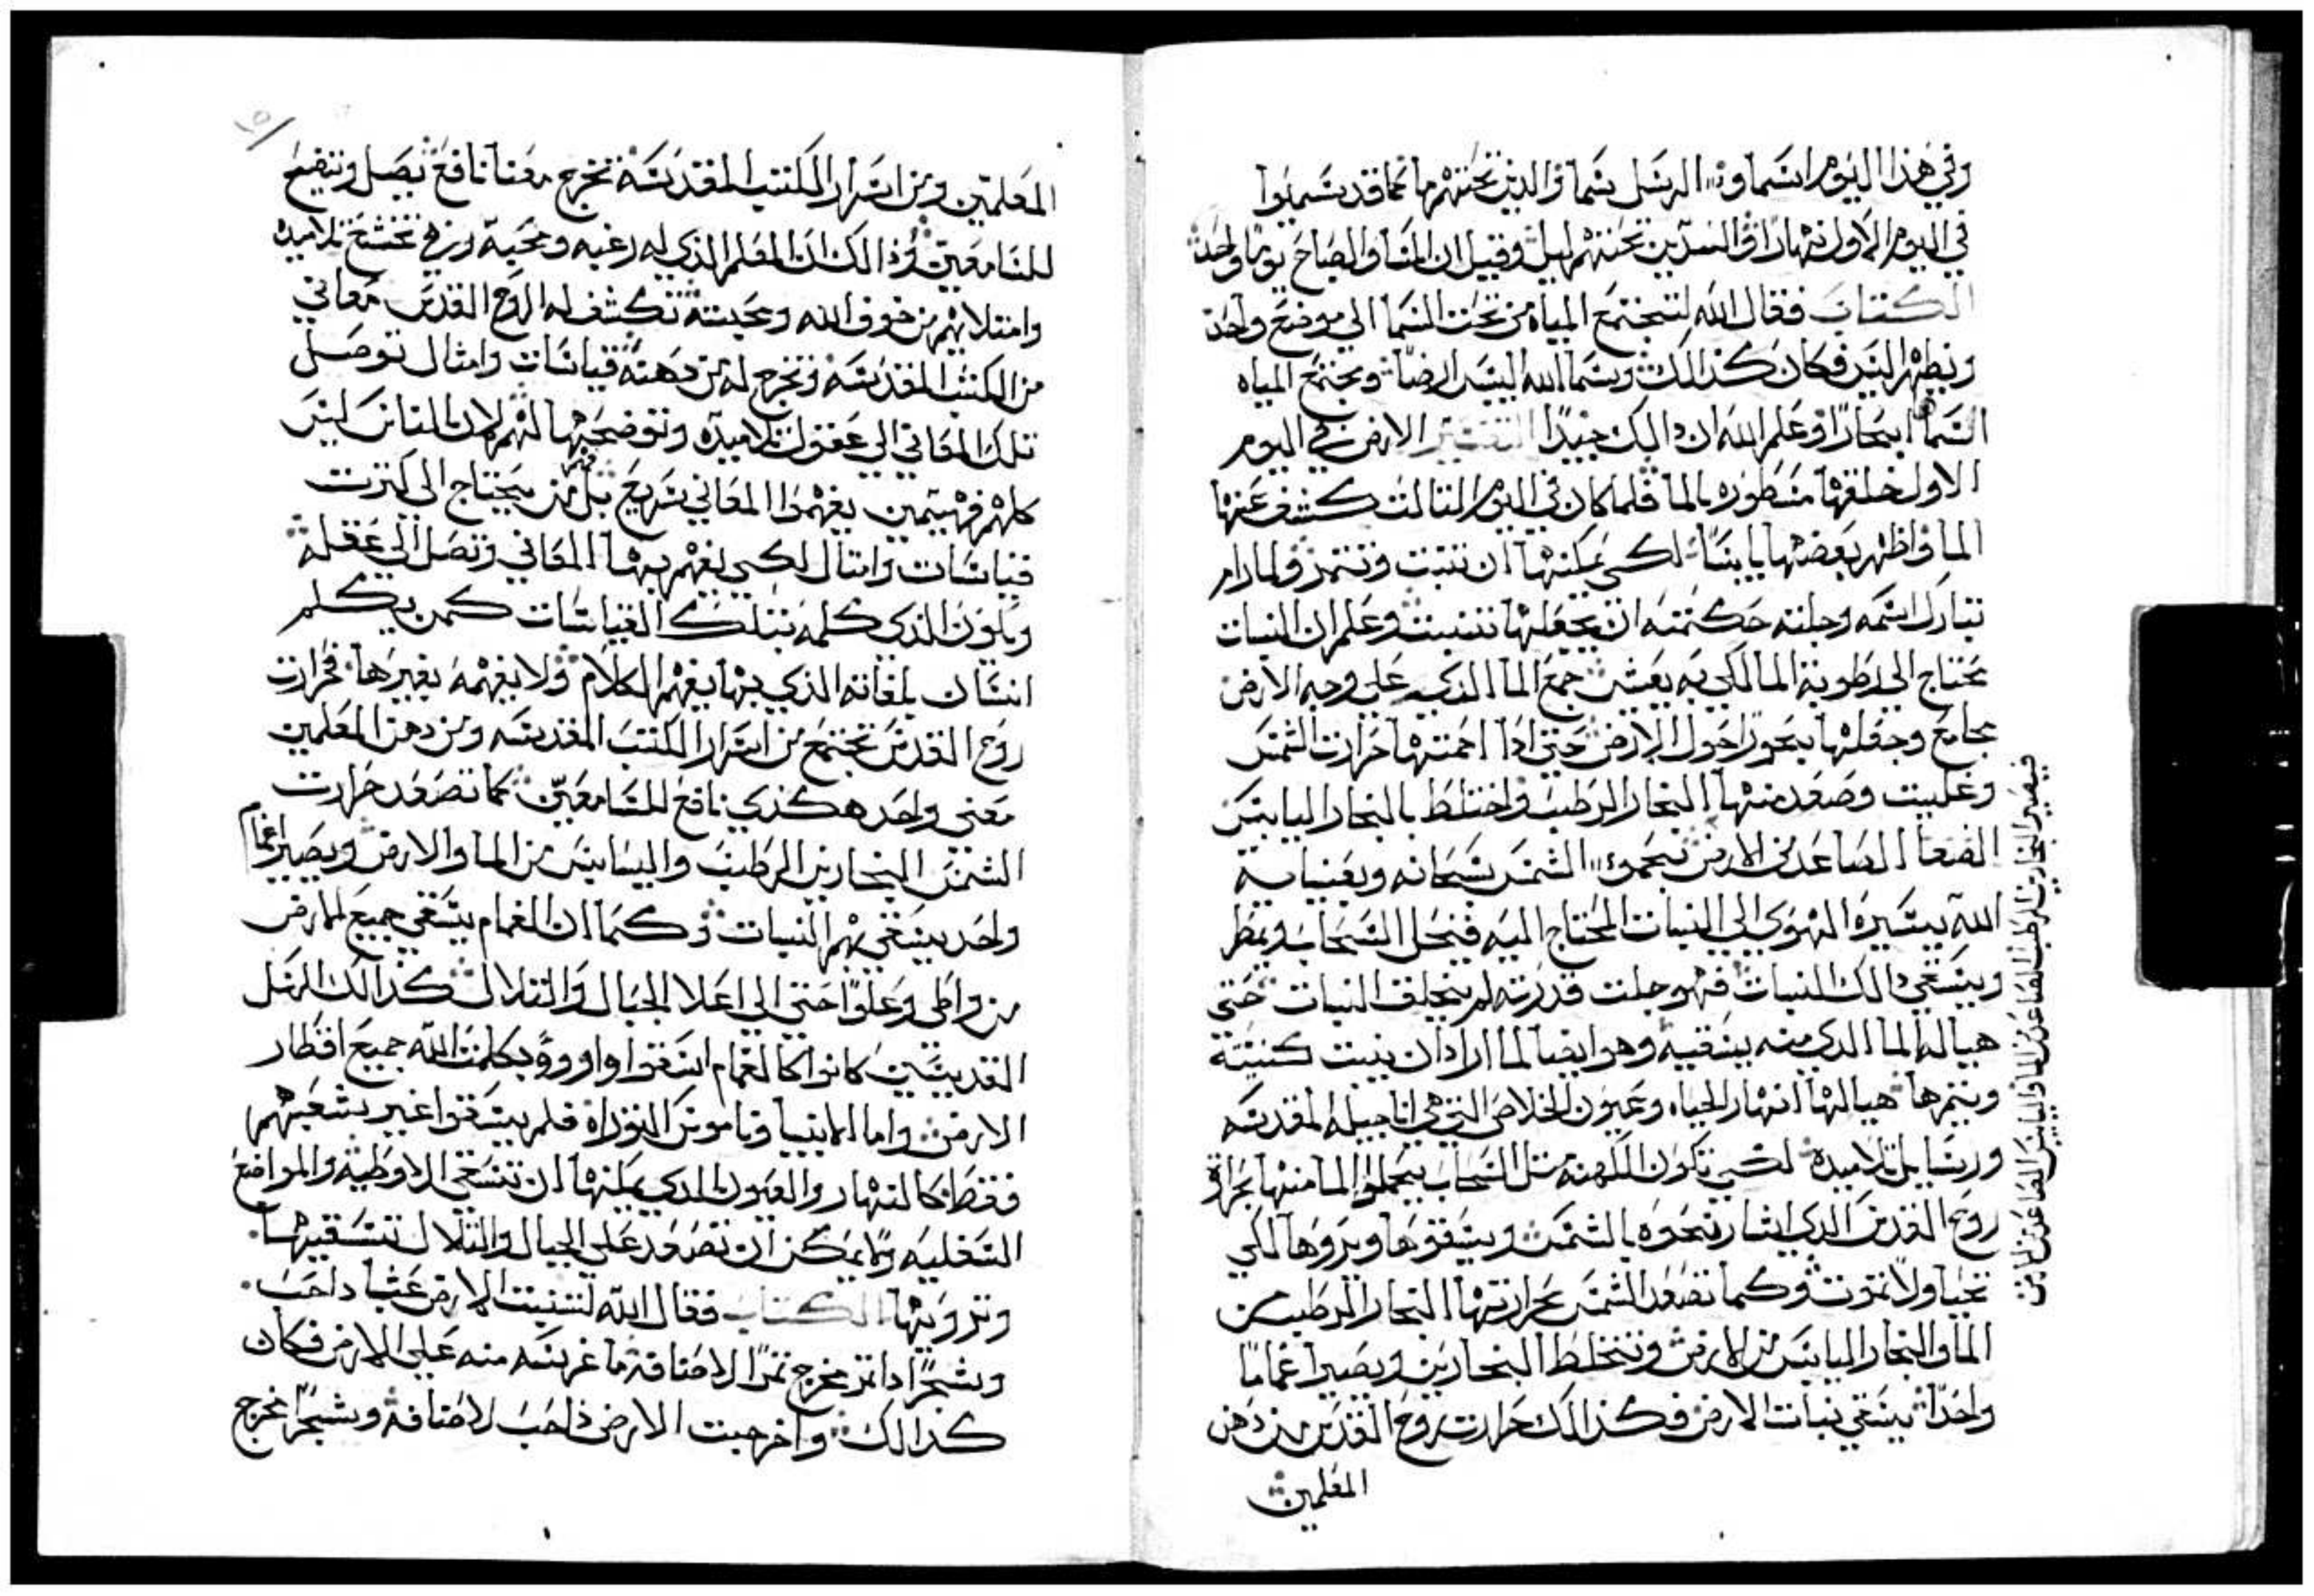 وفي هذا اليوم اسما ون الرسل سما والذين تحتهم ما نما قد سميوا
في اليوم الاول نهارًا والسدين تحتهم ليل وقيل ان المسا والصباح يومًا واحد
الكتاب فقال الله لتجتمع المياه من تحت السما الي موضع واحد
ويظهر اليبس فكان كذالك وسما الله اليبس ارضًا ومجتمع المياه
السما ابحارًا وعلم الله ان دالك جيدًا التفسير الارض في اليوم
الاول خلقها مسطوره بالما فلما كان في اليوم التالت كشف عنها
الما واظهر بعضها يابسًا لكي يمكنها ان تنبت وتتمر ولما رام
تبارك اسمه وجلته حكمته ان يجعلها تنبت وعلم ان النبات
يحتاج الي رطوبة الما لكي به يعش جمع الما الدي علي وجه الارض
مجامع وجعلها بحورًا حول الارض حتي ادا احمتها حرارت الشمس
وغليت وصعد منها البخار الرطب واختلط بالبخار اليابس
الصاعد من الارض سبحانه وبعنايه
الله بيسيره الهوي الي النبات المحتاج اليه فنحل السحاب ويمطر
ويسقي دالك النبات فهو جلت قدرته لم يخلف النبات حتي
هيا له الما الدي منه يسقيه وهو ايضا لما اراد ان ينبت كنيسة
ويتمرها هيا لها انهار الحياه وعيون الخلاص التي هي اناجيله المقدسه
ورسايل تلاميده لكي تكون الكهنه متل السحاب يتحملوا الما منها بحرارة
روح القدس الدي اشار نحوه بالشمس ويسقوها ويروها لكي
تحيا ولا تموت وكما تصعد الشمس بحرارتها البخار الرطب من
الما والبخار اليابس من الارض وتختلط البخارين ويصيرا غمامًا
واحدًا يسقي نبات الارض فكذالك حرارت روح القدس من دهن
المعلمين
فيصير البخارين الرطب الصاعد من الما واليابس الصاعد من الارض
المعلمين ومن اسرار الكتب المقدسه تخرج معنا نافع يصل وتنفع
للسامعين وذالك ان المعلم الذي له رغبه ومحبة في تخشع تلاميده
وامتلايهم من خوف الله ومحبته تكشف له الروح القدس معاني
من الكتب المقدسه وتخرج له من دهنه قياسات وامثال توصل
تلك المعاني الي عقول تلاميده وتوضحها لهم لان الناس ليس
كلهم فهيمين يفهموا المعاني سريع بل من يحتاج الي كترت
قياسات وامتال لكي يفهم بها المعاني وتصل الي عقله
ويكون الذي كلمه بتلك القياسات كمن يكلم
انسان بلغاته الذي بها يفهم الكلام ولا يفهمه بغيرها فحرارت
روح القدس تجتمع من اسرار الكتب المقدسه ومن دهن المعلمين
معني واحد هكذي نافع للسامعين كما تصعد حرارت
الشمس البخارين الرطب واليابس من الما والارض ويصيرا غمام
واحد يسقي بهم النبات وكما ان الغمام يسقي جميع الارض
من واطي وعلوًا حتي الي اعلا الجبال والتلال كذالك الرسل
القديسين كانوا كالغمام اسقوا وارووا بكلمت الله جميع اقطار
الارض واما الانبيا وناموس التوراة فلم يسقوا غير شعبهم
فقط كالنهار والعيون الدي يمكنها ان تسقي الاوطيه والمواضع
السفليه وما يمكن ان تصعد علي الجبال والتلال تسقيها
وترويها الكتاب فقال الله لتنبت الارض عشبا داحب
وشجرًا داتمر مخرج تمرًا لاصنافه ما غرسه منه علي الارض فكان
كدالك واخرجت الارض ذاحب لاصنافه وشجرًا مخرج